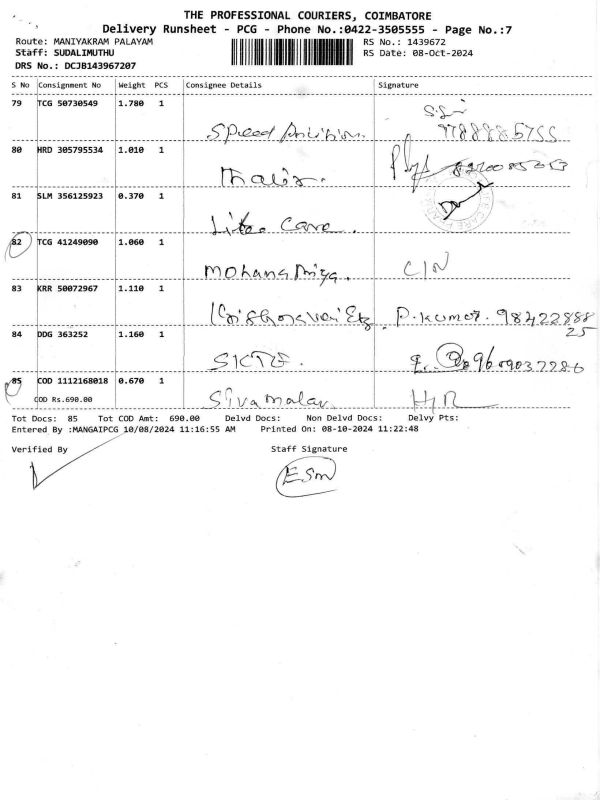 THE PROFESSIONAL COURIERS, COIMBATORE
Delivery Runsheet - PCG - Phone No.:0422-3505555 - Page No.:7
Route: MANIYAKRAM PALAYAM RS No.: 1439672
Staff: SUDALIMUTHU RS Date: 08-Oct-2024
DRS No.: DCJB143967207
S No Consignment No Weight PCS Consignee Details Signature
79 TCG 50730549 1.780 1
Speed
80 HRD 305795534 1.010 1
81 SLM 356125923 0.370 1
Care.
82 TCG 41249090 1.060 1
Mohana Priya. C/N
83 KRR 50072967 1.110 1
P. Kumar. 98422888
25
84 DDG 363252 1.160 1
9609037286
85 COD 1112168018 0.670 1
COD Rs.690.00
Siva malar H/R
Tot Docs: 85 Tot COD Amt: 690.00 Delvd Docs: Non Delvd Docs: Delvy Pts:
Entered By :MANGAIPCG 10/08/2024 11:16:55 AM Printed On: 08-10-2024 11:22:48
Verified By Staff Signature
ESM